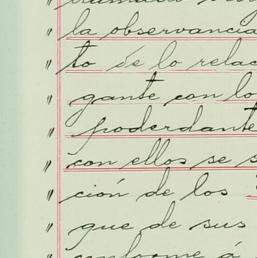 " la observancia
" to de lo relac
" gante con lo
" poderdante
" con ellos se s
" ción de los
" que de sus
" conforme á